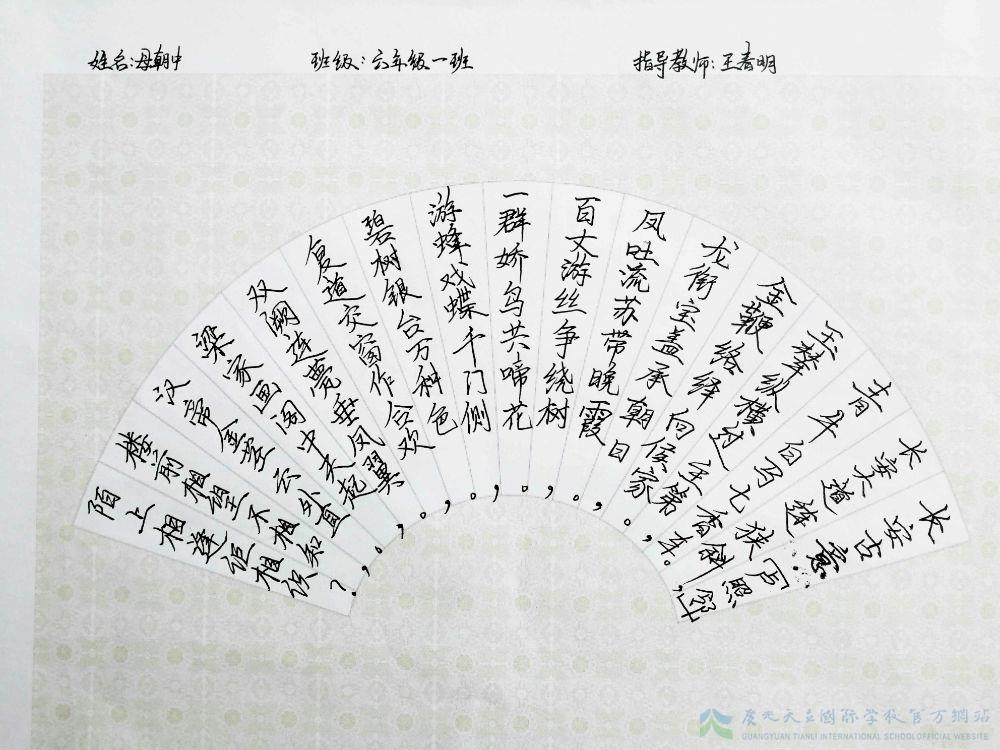 姓名:母朝中
班级:六年级一班
指导教师:王春明
长安古意……卢照邻
长安大道连狭斜,
青牛白马七香车。
玉辇纵横过主第,
金鞭络绎向侯家。
龙衔宝盖承朝日,
凤吐流苏带晚霞。
百丈游丝争绕树,
一群娇鸟共啼花。
游蜂戏蝶千门侧,
碧树银台万种色。
复道交窗作合欢,
双阙连甍垂凤翼。
梁家画阁中天起,
汉帝金茎云外直。
楼前相望不相知,
陌上相逢讵相识?
广元天立國际学校官方網站
GUANGYUAN TIANLI INTERNATIONAL SCHOOL OFFICIAL WEBSITE